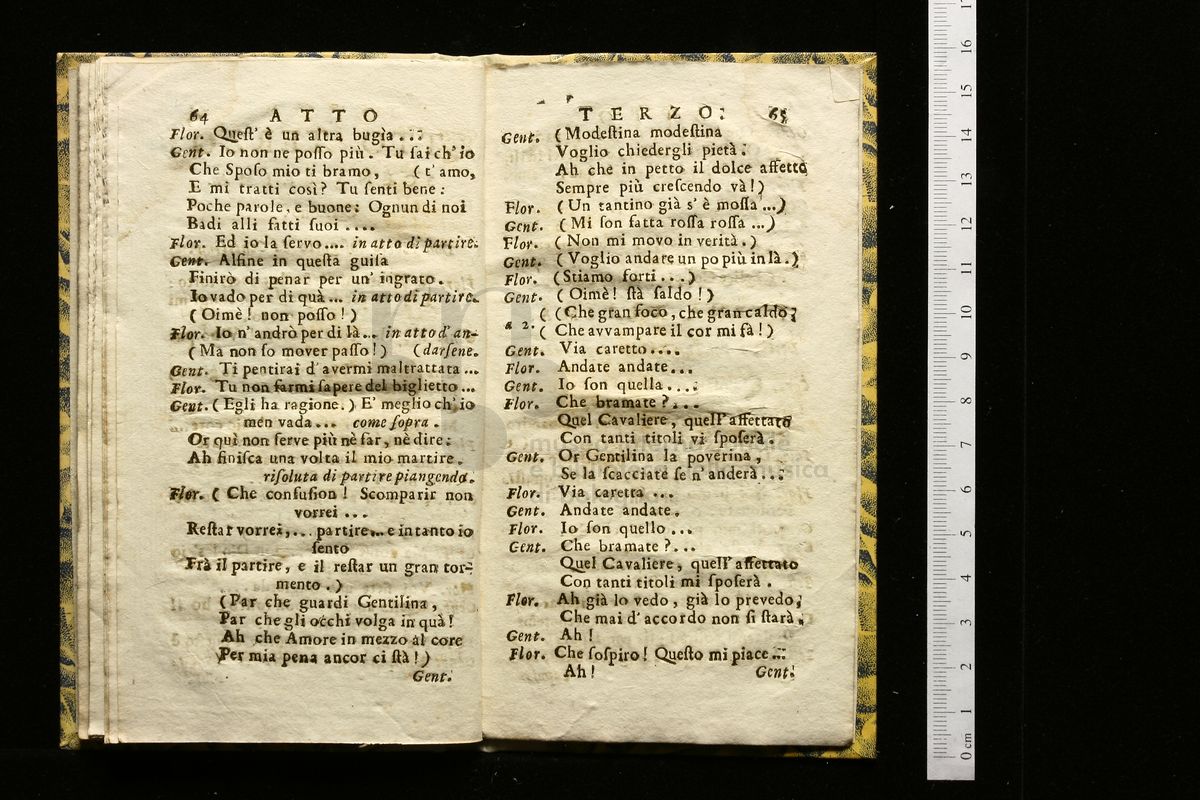 64 ATTO
Flor. Quest' è un altra bugìa...
Gent. Io non ne posso più. Tu sai ch' io
Che Sposo mio ti bramo, (t' amo,
E mi tratti così? Tu senti bene:
Poche parole, e buone: Ognun di noi
Badi alli fatti suoi ....
Flor. Ed io la servo.... in atto di partire.
Gent. Alfine in questa guisa
Finirò di penar per un' ingrato.
Io vado per di quà... in atto di partire.
(Oimè! non posso!)
Flor. Io n' andrò per di là... in atto d' an-
(Ma non so mover passo!) (darsene.
Gent. Ti pentirai d' avermi maltrattata...
Flor. Tu non farmi sapere del biglietto...
Gent. (Egli ha ragione.) E' meglio ch' io
men vada... come sopra.
Or quì non serve più nè far, nè dire:
Ah finisca una volta il mio martire.
risoluta di partire piangendo.
Flor. (Che confusion! Scomparir non
vorrei ...
Restar vorrei,... partire... e intanto io
sento
Frà il partire, e il restar un gran tor-
mento.)
(Par che guardi Gentilina,
Par che gli occhi volga in quà!
Ah che Amore in mezzo al core
Per mia pena ancor ci stà!)
Gent.
TERZO. 65
Gent. (Modestina modestina
Voglio chiedergli pietà.
Ah che in petto il dolce affetto
Sempre più crescendo và!)
Flor. (Un tantino già s' è mossa...)
Gent. (Mi son fatta rossa rossa...)
Flor. (Non mi movo in verità.)
Gent. (Voglio andare un po più in là.)
Flor. (Stiamo forti...)
Gent. (Oimè! stà saldo!)
a 2. ( (Che gran foco, che gran caldo,
( Che avvampare il cor mi fà!)
Gent. Via caretto....
Flor. Andate andate...
Gent. Io son quella....
Flor. Che bramate?...
Quel Cavaliere, quell' affettato
Con tanti titoli vi sposerà.
Gent. Or Gentilina la poverina,
Se la scacciate se n' anderà...
Flor. Via caretta ...
Gent. Andate andate.
Flor. Io son quello...
Gent. Che bramate?...
Quel Cavaliere, quell' affettato
Con tanti titoli mi sposerà.
Flor. Ah già lo vedo, già lo prevedo,
Che mai d' accordo non si starà.
Gent. Ah!
Flor. Che sospiro! Questo mi piace...
Ah! Gent.